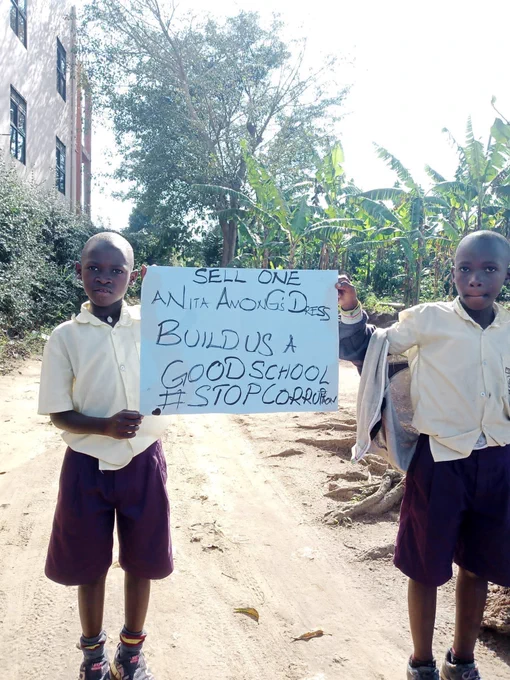 SELL ONE
ANITA AMONGS DRESS
BUILD US A
GOOD SCHOOL
#STOPCORRUPTION